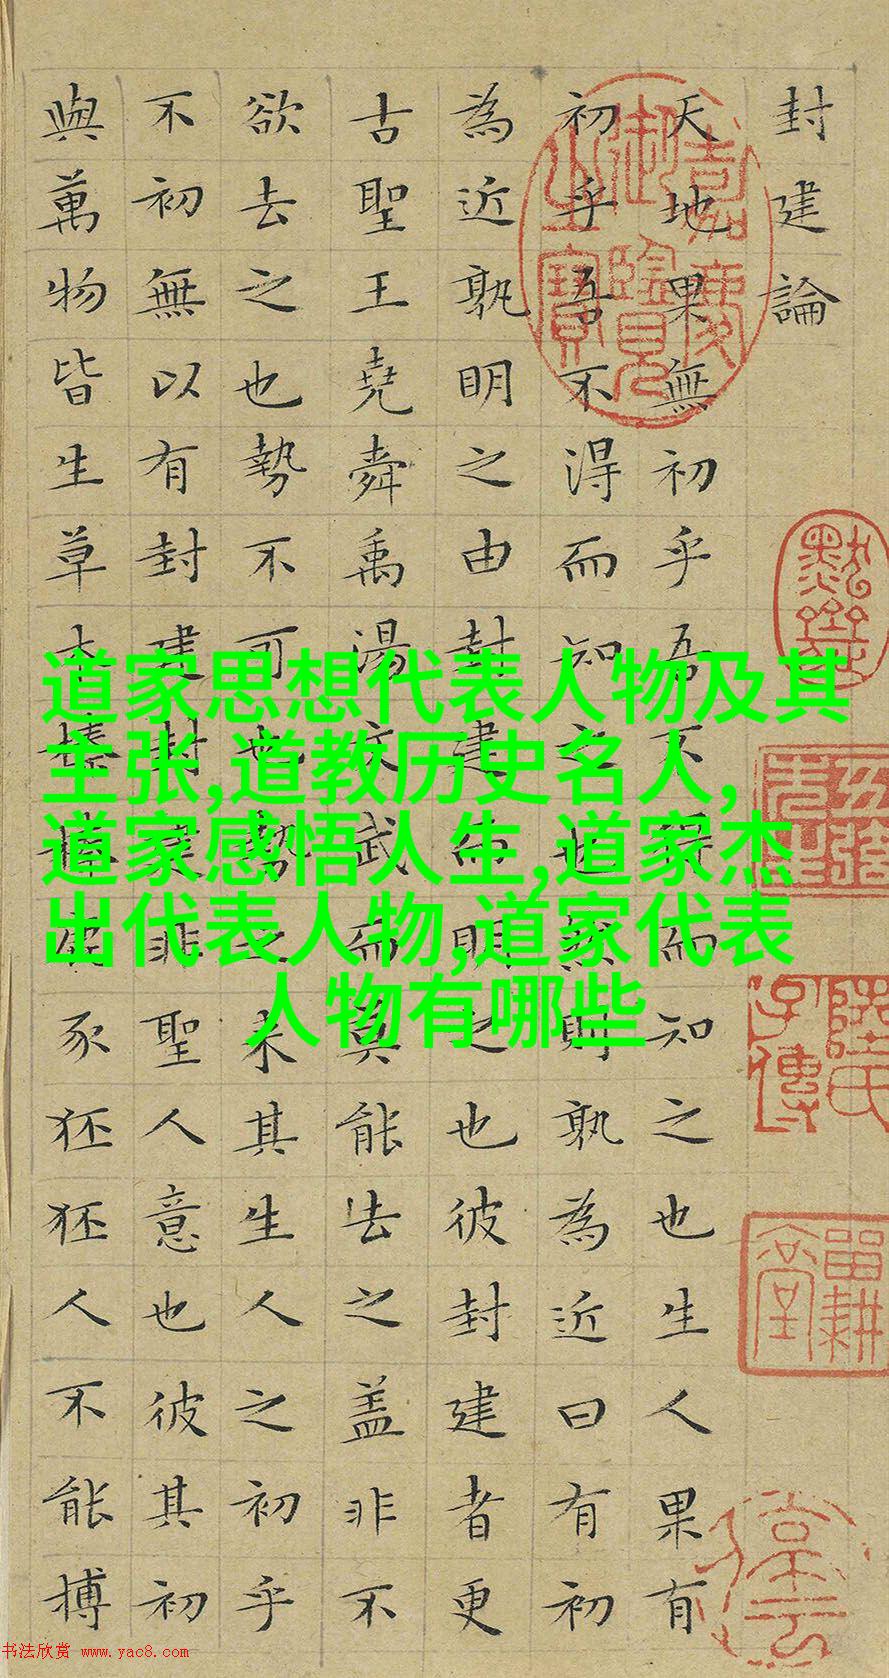 封建論
天地果無初乎吾不得而知之也生人果有
初乎吾不得而知之也然則孰為近曰有初
為近孰明之由封建而明之也彼封建者更
古聖王堯舜禹湯文武而莫能去之盖非不
欲去之也勢不可也勢之来其生人之初乎
不初無以有封建封建非聖人意也彼其初
與萬物皆生草木榛榛鹿豕狉狉人不能搏
嘉慶御覽之寶
道家思想代表人物及其
主张,道教历史名人,
道家感悟人生,道家杰
出代表人物,道家代表
人物有哪些
书法欣赏 www.yac8.com